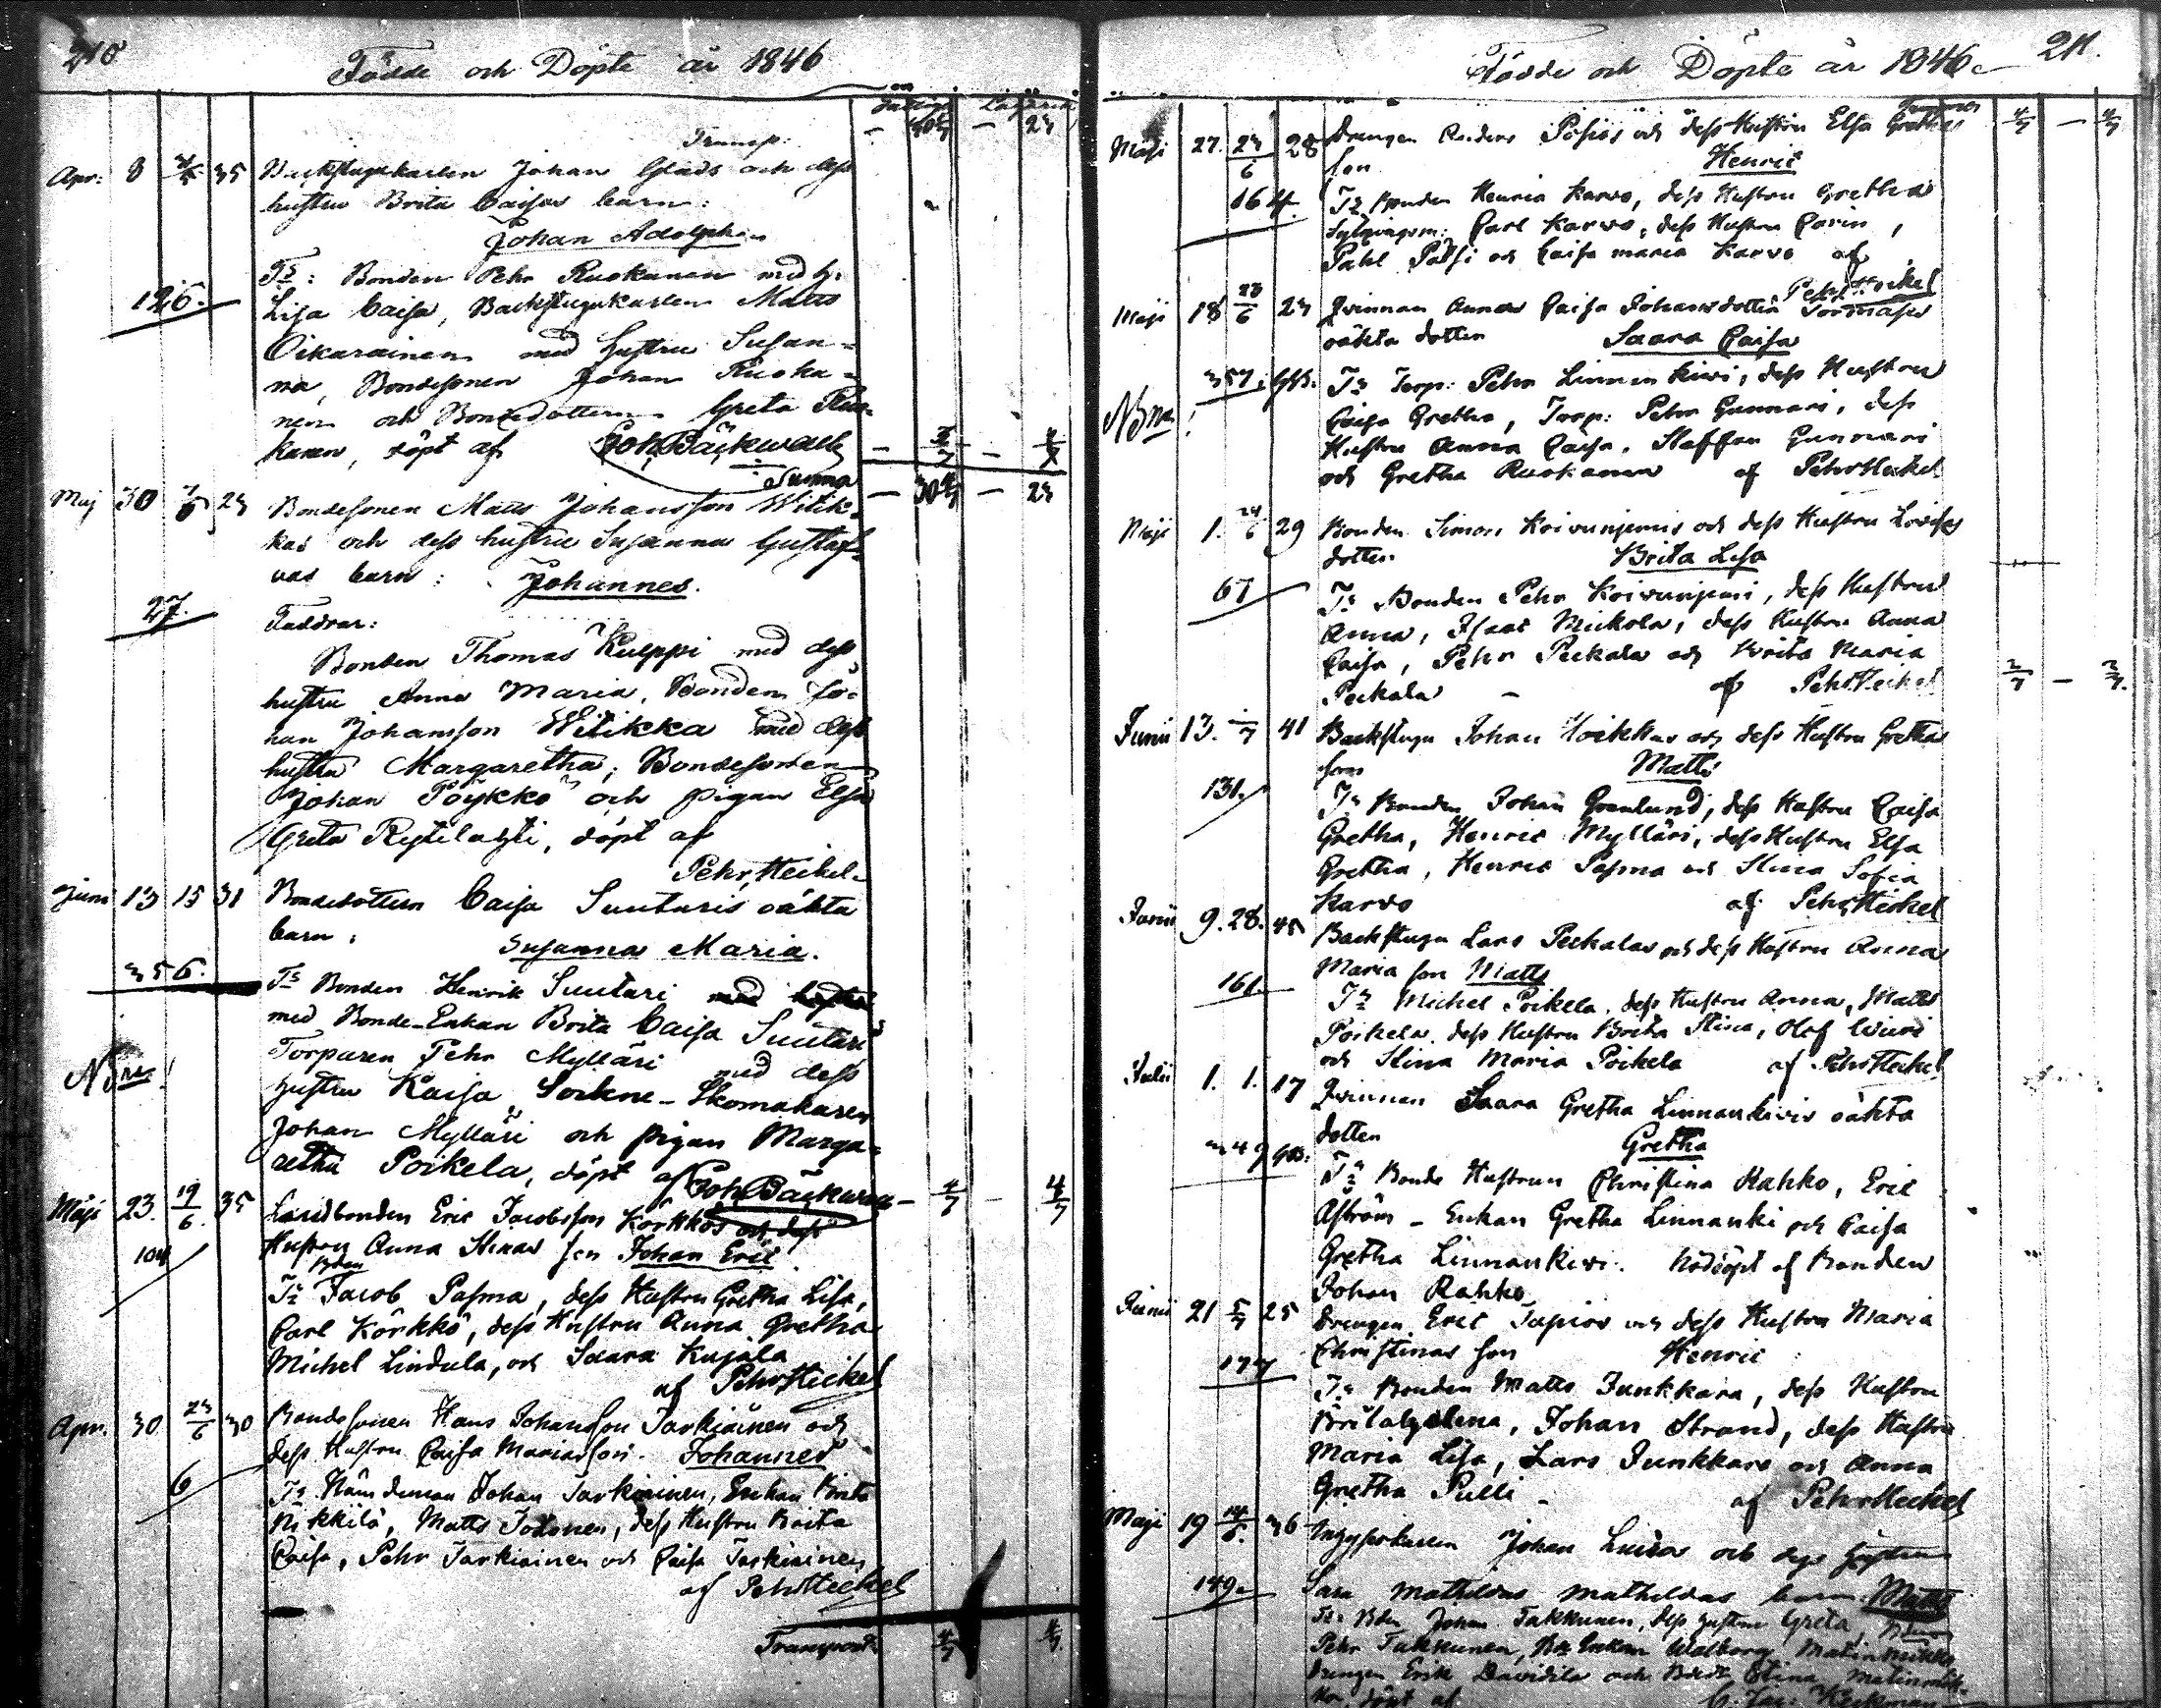 210
Födde och Döpte år 1846
Transp:
Apr: 8 35 Backstugukarlen Johan Glads och dess
hustru Brita Caisas barn:
Johan Adolph
126. Ts: Bonden Pehr Ruokanen med h.
Lisa Caisa, Backstugukarlen Matts
Oikarainen med hustru Susan=
na, Bondesonen Johan Ruoka=
nen och Bondedottern Greta Ruo=
kanen, döpt af Joh. Bäckwall
Summa
Maj 30 23 Bondesonen Matts Johansson Witik=
kas och dess hustru Susanna Gustaf=
vas barn: Johannes.
27. Faddrar:
Bonden Thomas Kulppi med dess
hustru Anna Maria, Bonden Jo=
han Johansson Witikka med dess
hustru Margaretha, Bondesonen
Johan Pöykkö och pigan Elsa
Greta Rytilahti, döpt af
Pehr Heikel.
Juni 13 15 31 Bondedottern Caisa Suutaris oäkta
barn: Susanna Maria.
356. Ts Bonden Henrik Suutari
med Bonde-Enkan Brita Caisa Suutari
Torparen Pehr Mylläri med dess
hustru Kaisa, Sockne-Skomakaren
Johan Mylläri och pigan Marga=
retha Poikela, döpt af Joh. Bäckwall
Maji 23. 19/6. 35 Landbonden Eric Jacobsson Körkkös och dess
Hustru Anna Stinas son Johan Eric
104 Ts Bden Jacob Pasma, dess Hustru Gretha Lisa,
Carl Körkkö, dess Hustru Anna Gretha
Michel Lindula, och Saara Kujala
af Pehr Heikel
Apr. 30 23/6 30 Bondesonen Hans Johansson Tarkiainen och
dess Hustru Caisa Marias son. Johannes
6 Ts Nämdeman Johan Tarkiainen, Enkan Brita
Nikkilä, Matts Toloinen, dess Hustru Brita
Caisa, Pehr Tarkiainen och Caisa Tarkiainen
af Pehr Heikel
Transport
Födde och Döpte år 1846 211.
Transport
Maji 27. 23/6 28 Drengen Anders Posios och dess Hustru Elsa Grethas
son Henric
16 Ts Bonden Henric Karvo, dess Hustru Gretha
Carl Karvo, dess Hustru Carin,
Pahl Palsi och Caisa Maria Karvo af
Pehr Heikel
Maji 18 23/6 23 Qvinnan Annas Caisa Johansdotter
oäkta dotter Saara Caisa
357. Ts Torp: Pehr Linnankivi, dess Hustru
Caisa Gretha, Torp: Pehr Gunnari, dess
Hustru Anna Caisa, Staffan Gunnari
och Gretha Ruokanen af Pehr Heikel
Maji 1. 24/6 29 Bonden Simon Koivunjemis och dess Hustru Lovisas
dotter Brita Lisa
67 Ts Bonden Pehr Koivunjemi, dess Hustru
Anna, Isaac Mickola, dess Hustru Anna
Caisa, Pehr Peckala och Brita Maria
Peckala af Pehr Heikel
Junii 13. 41 Backstugu Johan Hoikkas och dess Hustru Grethas
son Matts
131. Ts Bonden Johan Granlund, dess Hustru Caisa
Gretha, Henric Mylläri, dess Hustru Elsa
Gretha, Henric Pasma och Stina Sofia
Karvo af Pehr Heikel
Junii 9. 28. 45 Backstugu Lars Peckalas och dess Hustru Anna
Maria son Matts
161. Ts Michel Poikela, dess Hustru Anna, Matts
Poikela, dess Hustru Brita Stina, Olof Wiuri
och Stina Maria Poikela af Pehr Heikel
Julii 1. 1. 17 Qvinnan Saara Gretha Linnankivis oäkta
dotter Gretha
Ts Bonde Hustrun Christina Rahko, Eric
Aström - Enkan Gretha Linnanki och Caisa
Gretha Linnankivi. Nöddöpt af Bonden
Johan Rahko
Junii 21 5/7 25 Drengen Eric Tapios och dess Hustru Maria
Christinas son Henric
177 Ts Bonden Matts Junkkara, dess Hustru
Brita Helena, Johan Strand, dess Hustru
Maria Lisa, Lars Junkkara och Anna
Gretha Pulli af Pehr Heikel
Maji 19 36 Johan och dess hustru
149. Sara Mathildas Mathildas barn: Matts
Ts: Bden Johan Takkunen, dess hustru Greta,
Pehr Takkunen, Bde Enkan Walborg Matinmikko
Drengen Erik Davidila och Bdedr Stina Matinmik=
ko, döpt af